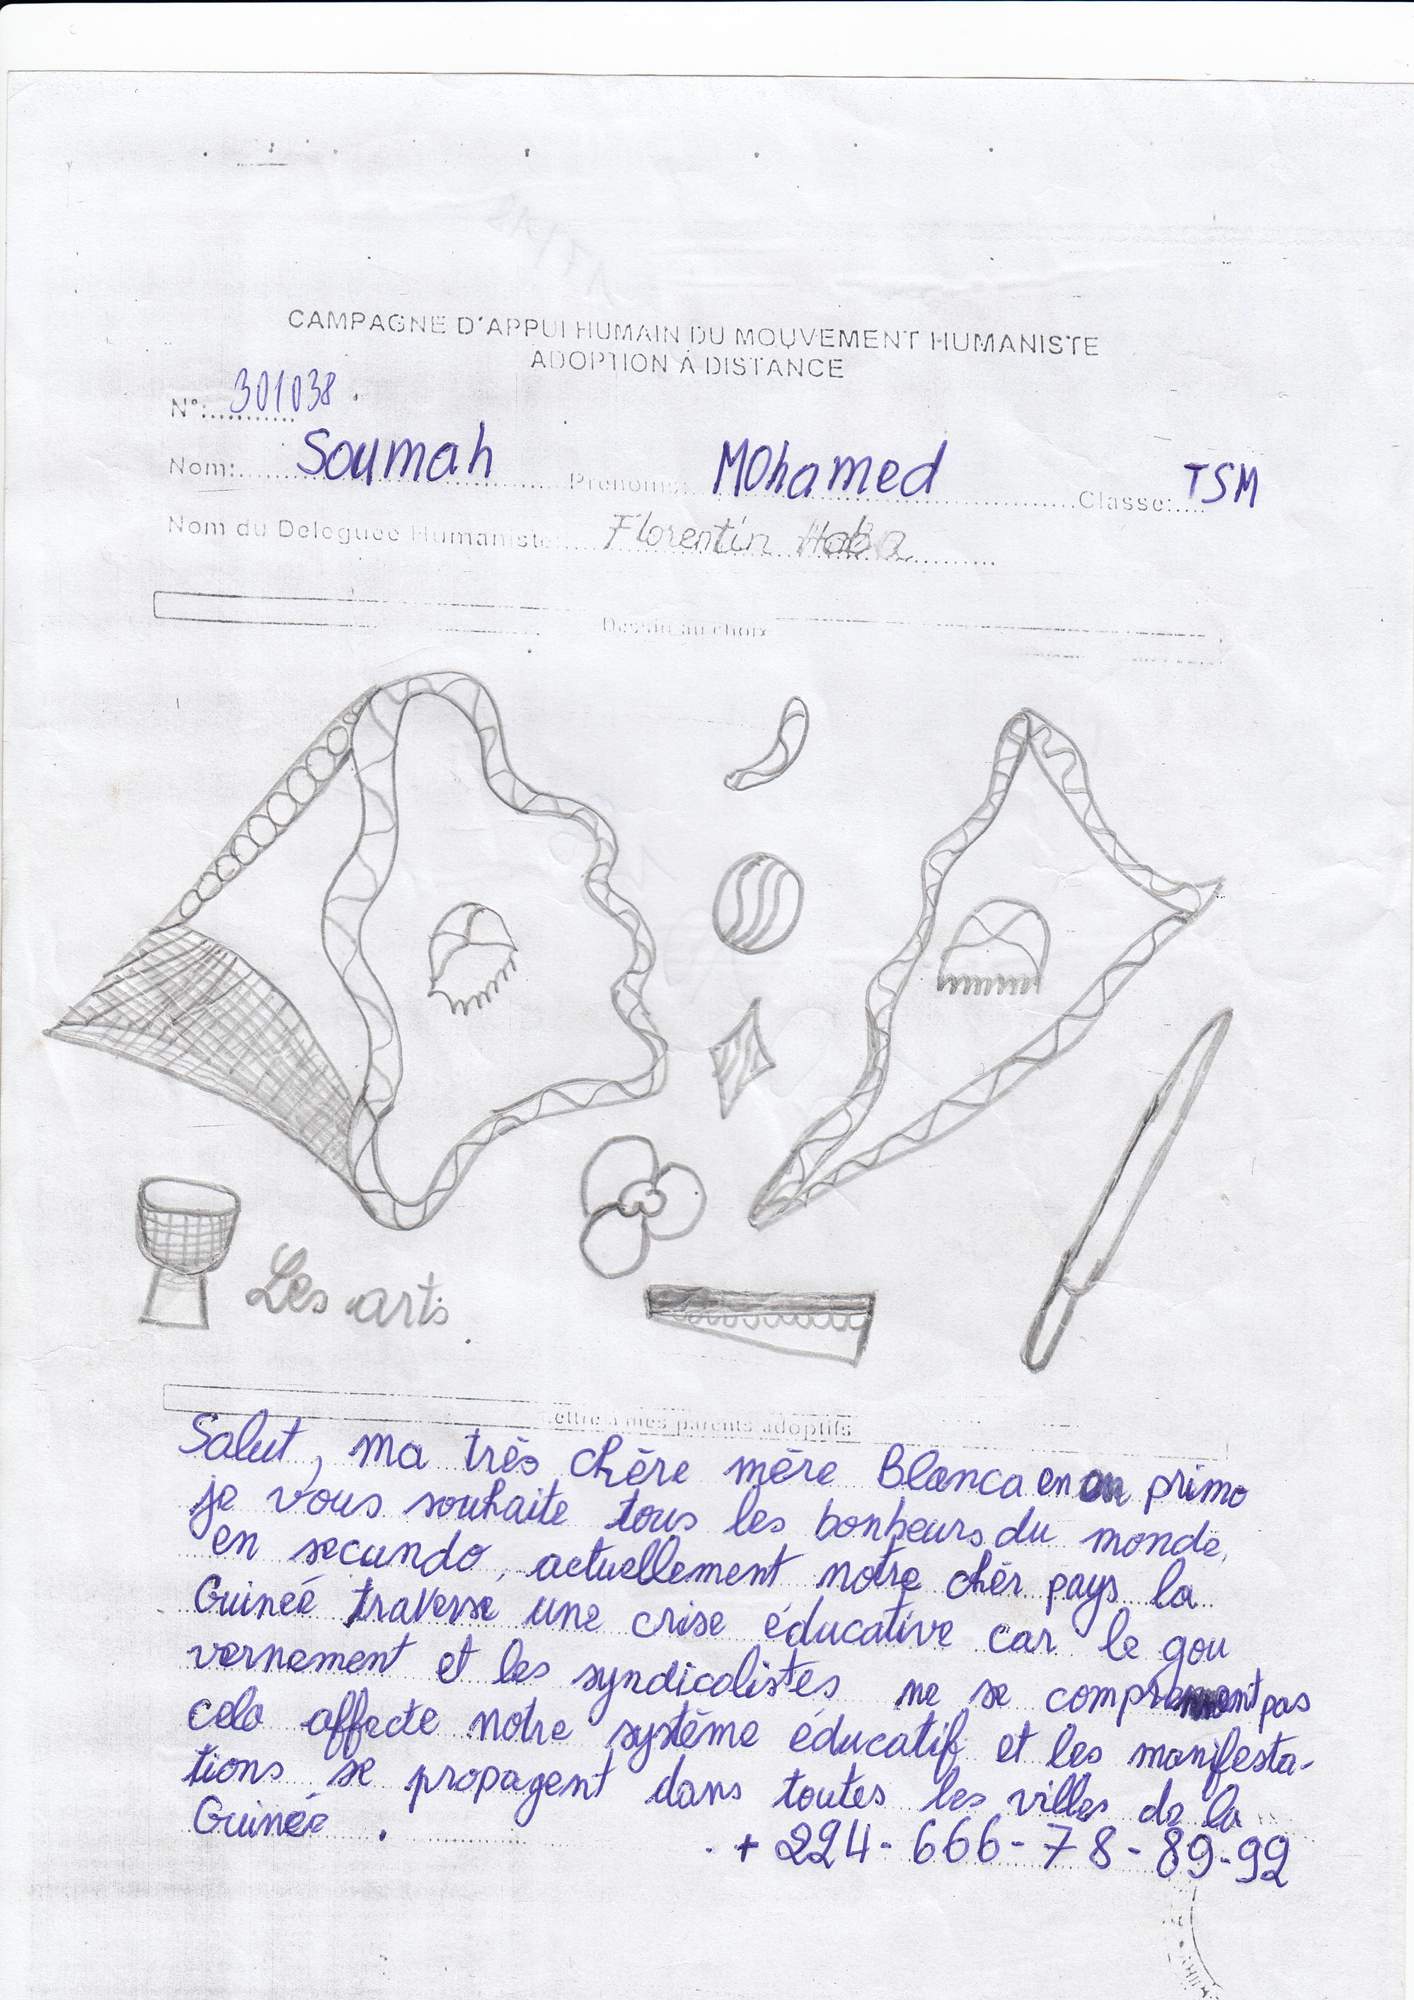 CAMPAGNE D'APPUI HUMAIN DU MOUVEMENT HUMANISTE
ADOPTION A DISTANCE
N°: 301038
Nom: Soumah Prénoms: MOhamed Classe: TSM
Nom du Deleguée Humaniste: Florentin Haba
Dessin au choix
Les arts
Lettre a mes parents adoptifs
Salut, ma très chère mère Blanca en primo
je vous souhaite tous les bonheurs du monde,
en secundo, actuellement notre chèr pays la
Guinée traverse une crise éducative car le gou
vernement et les syndicalistes ne se comprennent pas
cela affecte notre système éducatif et les manifesta-
tions se propagent dans toutes les villes de la
Guinée.
+ 224-666-78-89-92